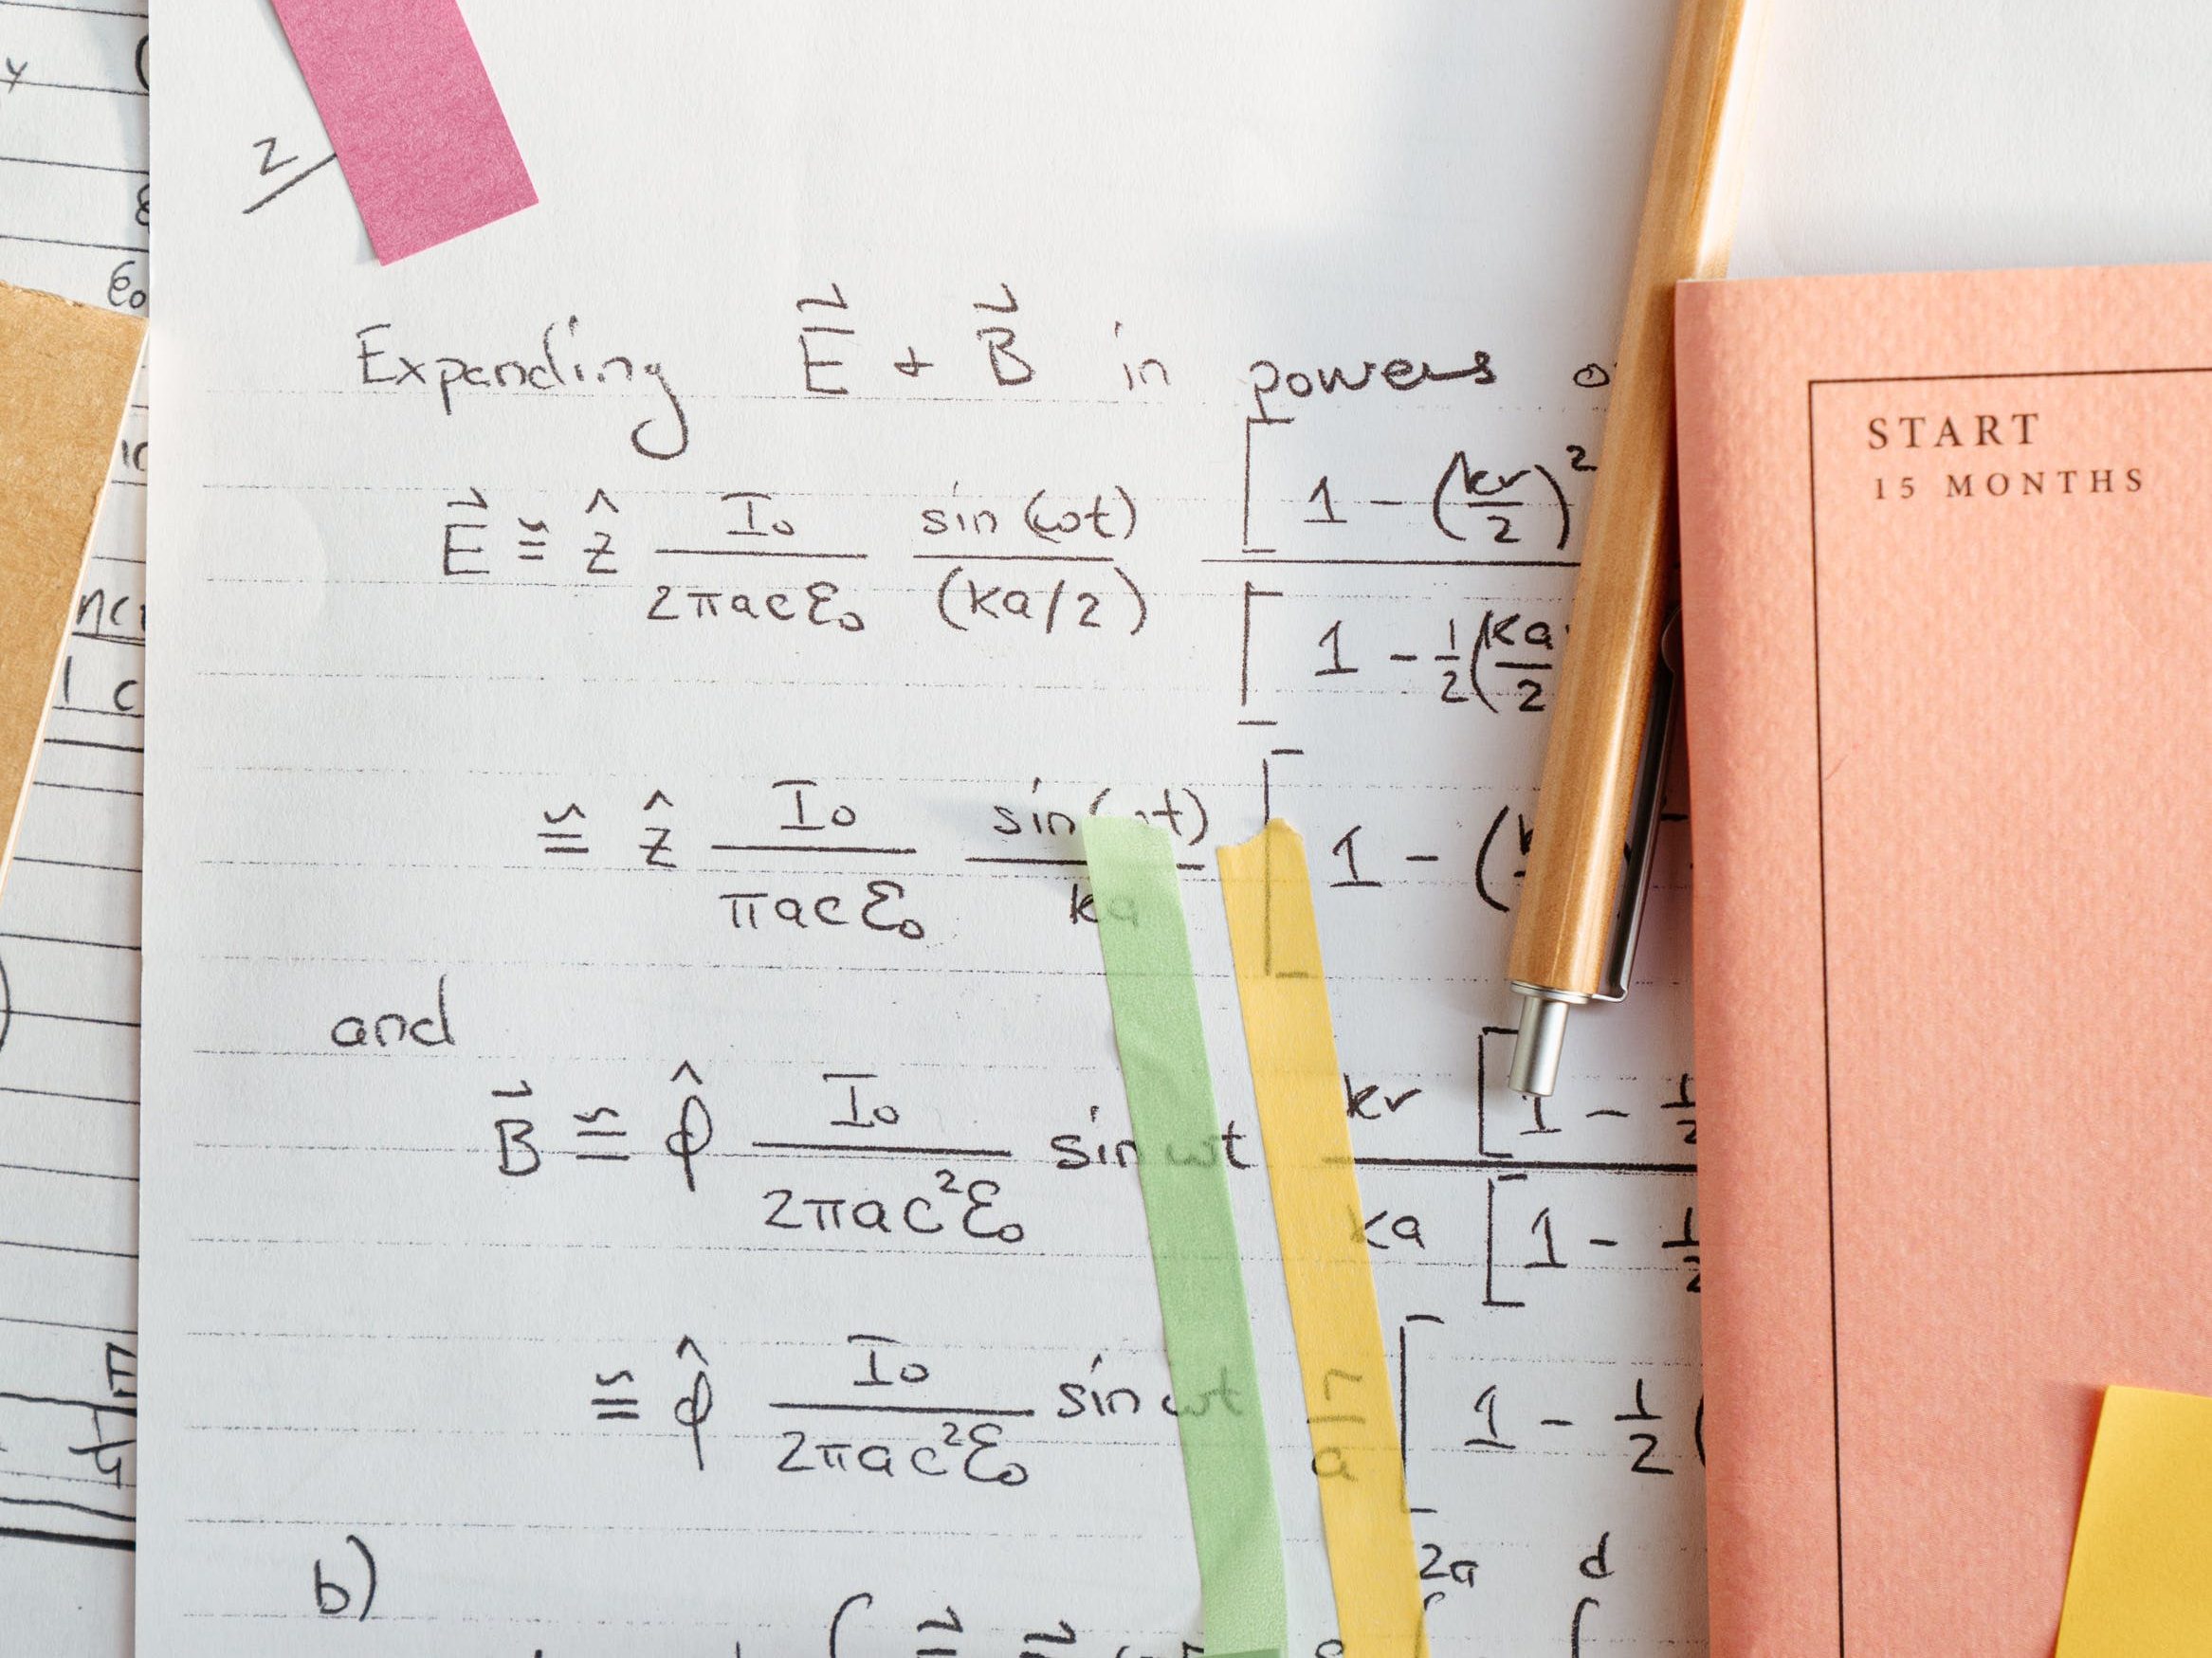 2
Expanding E⃗ + B⃗ in powers
E⃗ ≅ ẑ I₀/(2πacε₀) sin(ωt)/(ka/2) [1 - (kr/2)²
[1 - ½(ka/2
≅ ẑ I₀/(πacε₀) sin(ωt)/ka [1 - (
and
B⃗ ≅ φ̂ I₀/(2πac²ε₀) sin ωt kr [1 - ½
ka [1 - ½
≅ φ̂ I₀/(2πac²ε₀) sin ωt r/a [1 - ½(
b)
2π d
START
15 MONTHS
ε₀